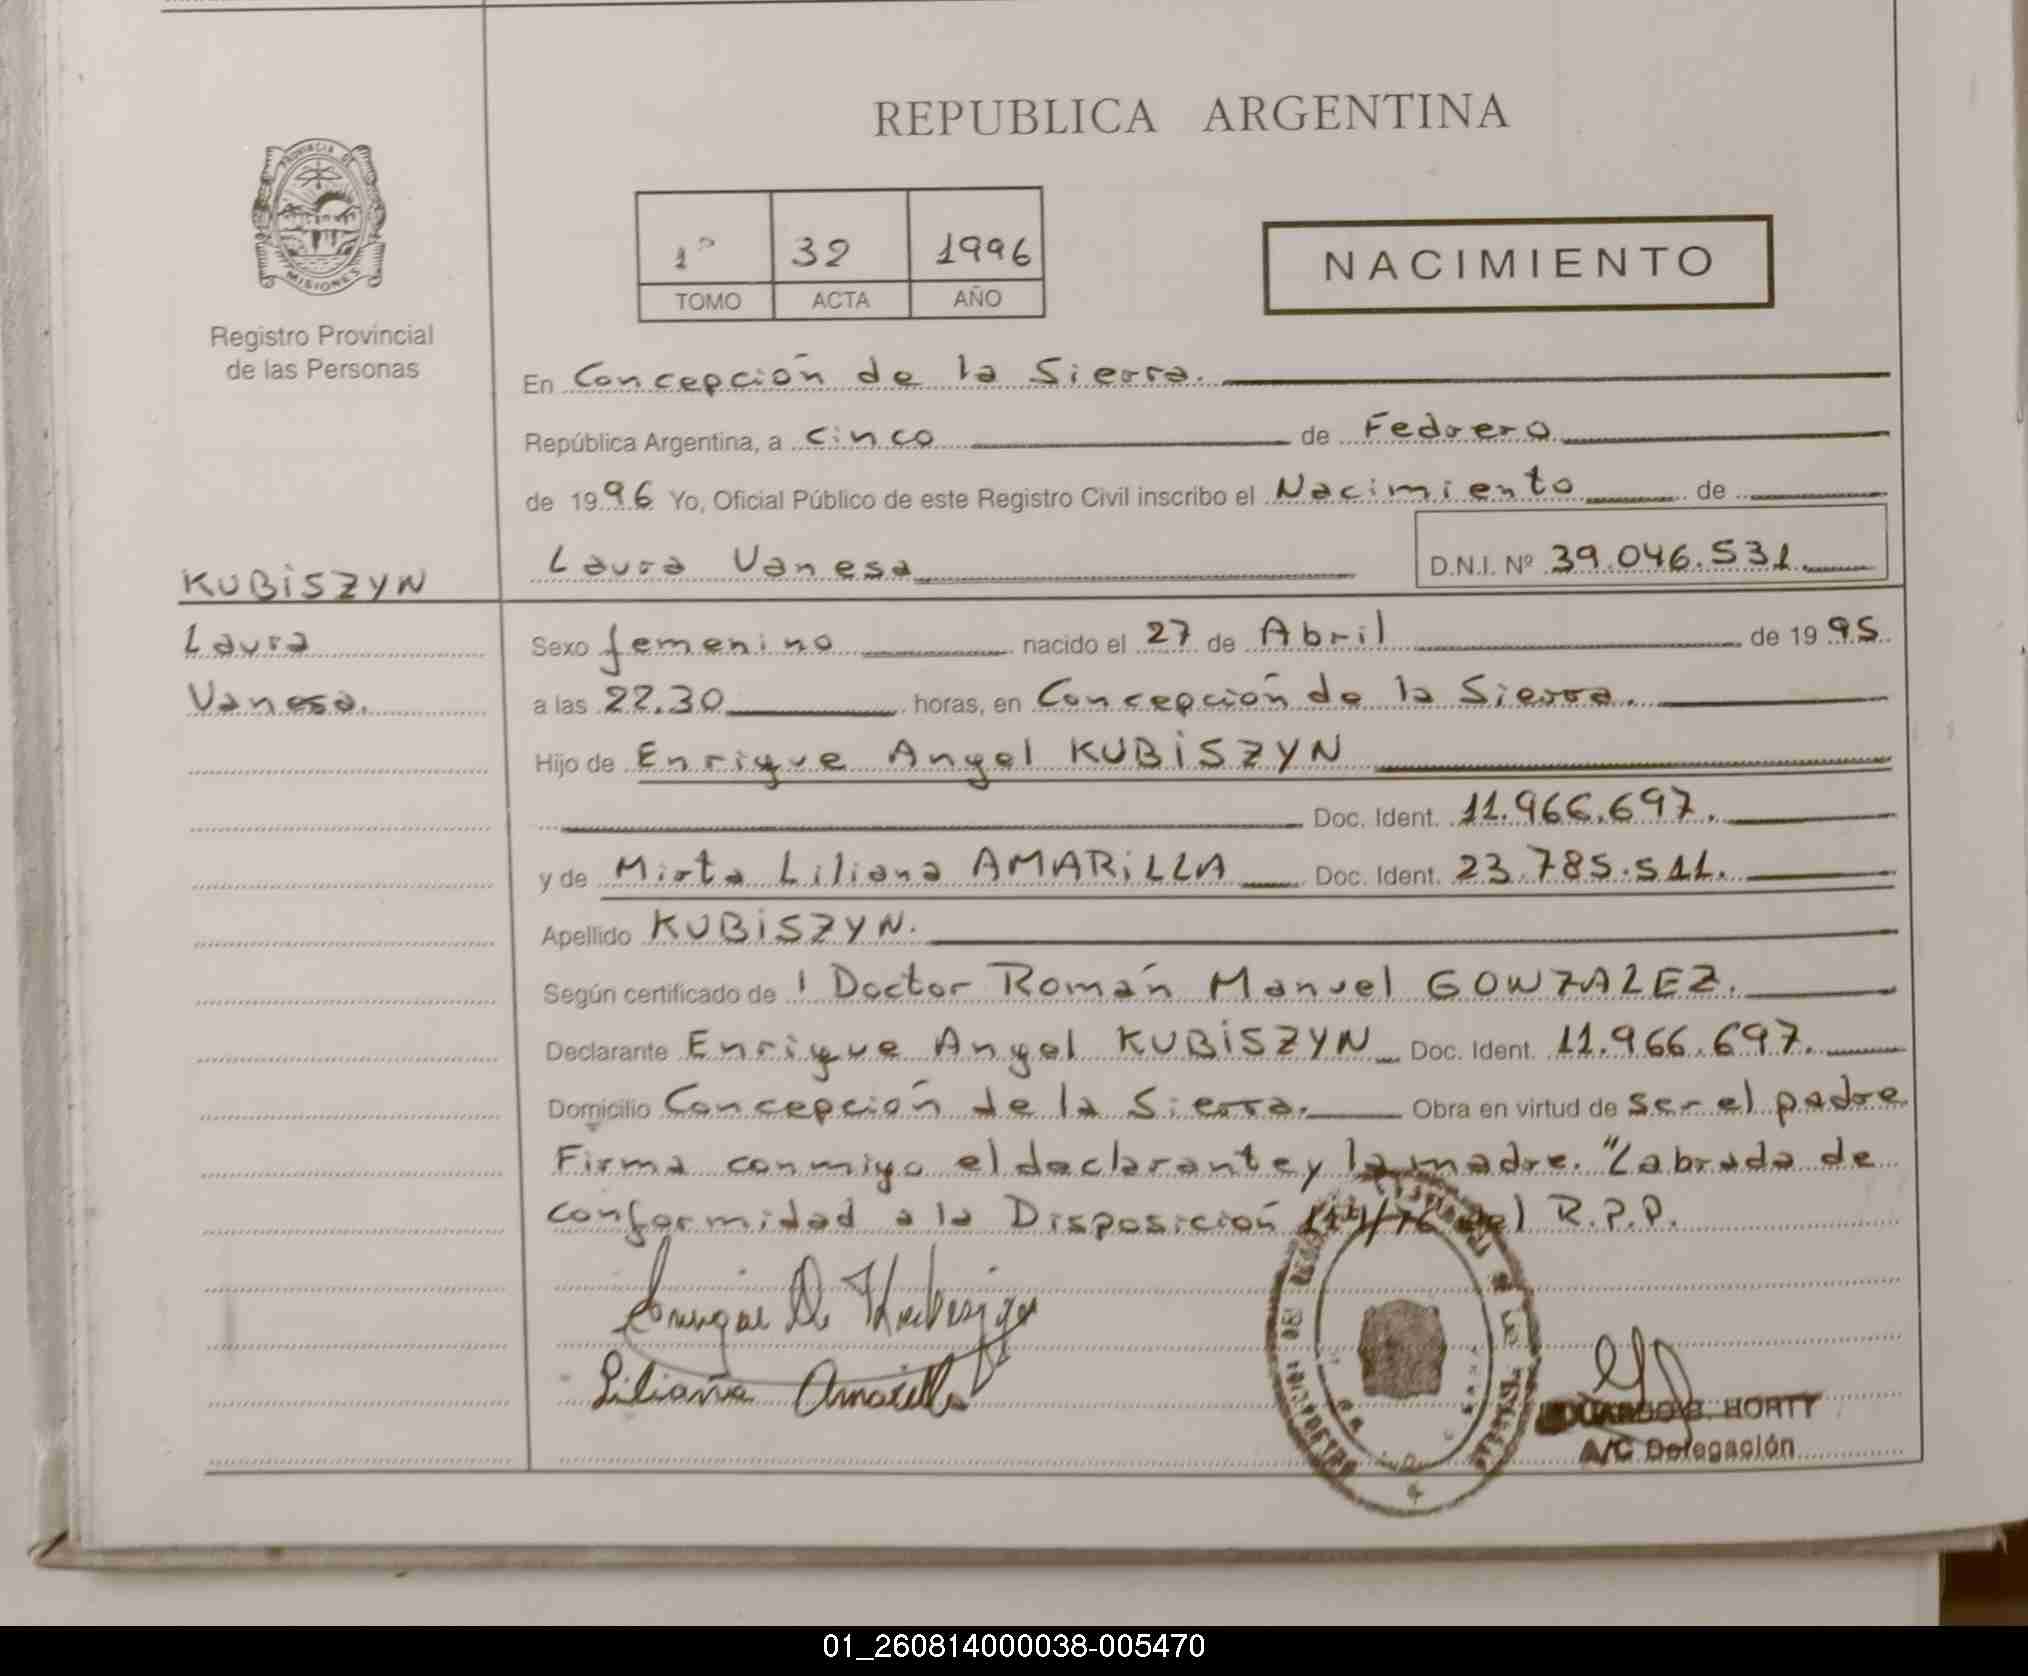 REPUBLICA ARGENTINA
PROVINCIA DE
MISIONES
Registro Provincial
de las Personas
1º 32 1996
TOMO ACTA AÑO
NACIMIENTO
En Concepción de la Sierra.
República Argentina, a cinco de Febrero
de 1996 Yo, Oficial Público de este Registro Civil inscribo el Nacimiento de
Laura Vanesa D.N.I. Nº 39.046.531
KUBISZYN
Laura
Vanesa.
Sexo femenino nacido el 27 de Abril de 1995
a las 22.30 horas, en Concepción de la Sierra.
Hijo de Enrique Angel KUBISZYN
Doc. Ident. 11.966.697.
y de Mirta Liliana AMARILLA Doc. Ident. 23.785.511.
Apellido KUBISZYN.
Según certificado de l Doctor Román Manuel GONZALEZ.
Declarante Enrique Angel KUBISZYN Doc. Ident. 11.966.697.
Domicilio Concepción de la Sierra. Obra en virtud de ser el padre
Firma conmigo el declarante y la madre. "Labrada de
conformidad a la Disposición /76 del R.P.P.
Enrique A Kubiszyn
Liliana Amarilla
EDUARDO HORTY
A/C Delegación
01_260814000038-005470